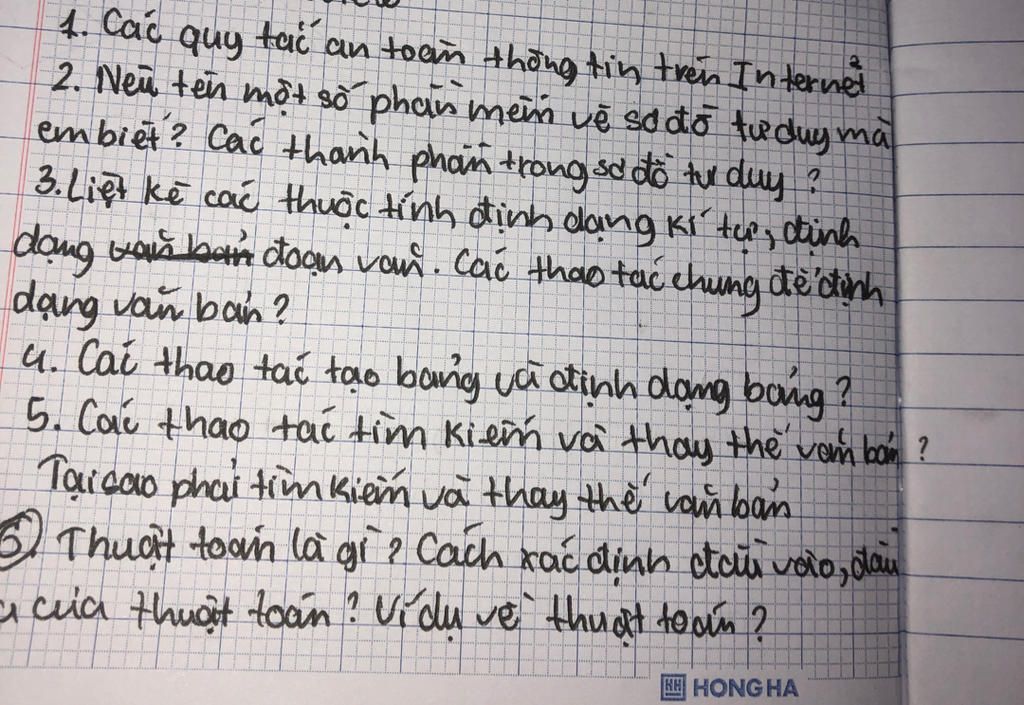 1. Các quy tắc an toàn thông tin trên Internet?
2. Nêu tên một số phần mềm vẽ sơ đồ tư duy mà
em biết? Các thành phần trong sơ đồ tư duy?
3. Liệt kê các thuộc tính định dạng kí tự, định
dạng văn bản đoạn văn. Các thao tác chung để định
dạng văn bản?
4. Các thao tác tạo bảng và định dạng bảng?
5. Các thao tác tìm kiếm và thay thế văn bản?
Tại sao phải tìm kiếm và thay thế văn bản
6) Thuật toán là gì? Cách xác định đầu vào, đầu
của thuật toán? Ví dụ về thuật toán?
HH HONG HA